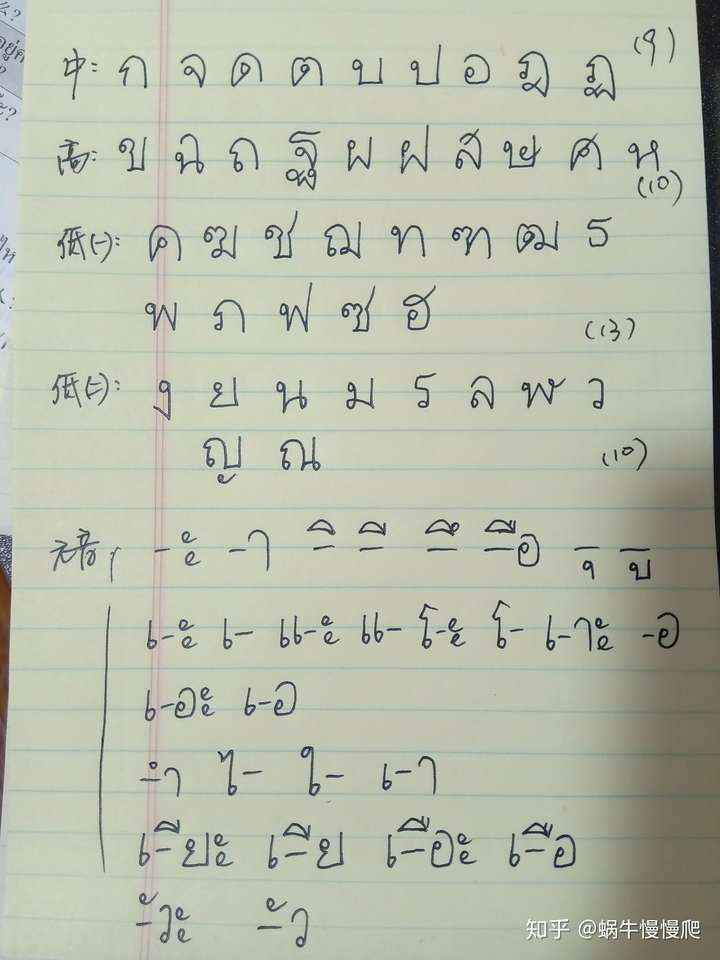 中: ก จ ด ต บ ป อ ฎ ฏ (9)
高: ข ฉ ถ ฐ ผ ฝ ส ษ ศ ห (10)
低(一): ค ฆ ช ฌ ท ฑ ฒ ธ
พ ภ ฟ ซ ฮ (13)
低(二): ง ย น ม ร ล ฬ ว
ญ ณ (10)
元音, -ะ -า -ิ -ี -ึ -ือ -ุ -ู
เ-ะ เ- แ-ะ แ- โ-ะ โ- เ-าะ -อ
เ-อะ เ-อ
-ำ ไ- ใ- เ-า
เ-ียะ เ-ีย เ-ือะ เ-ือ
-ัวะ -ัว
知乎 @蜗牛慢慢爬